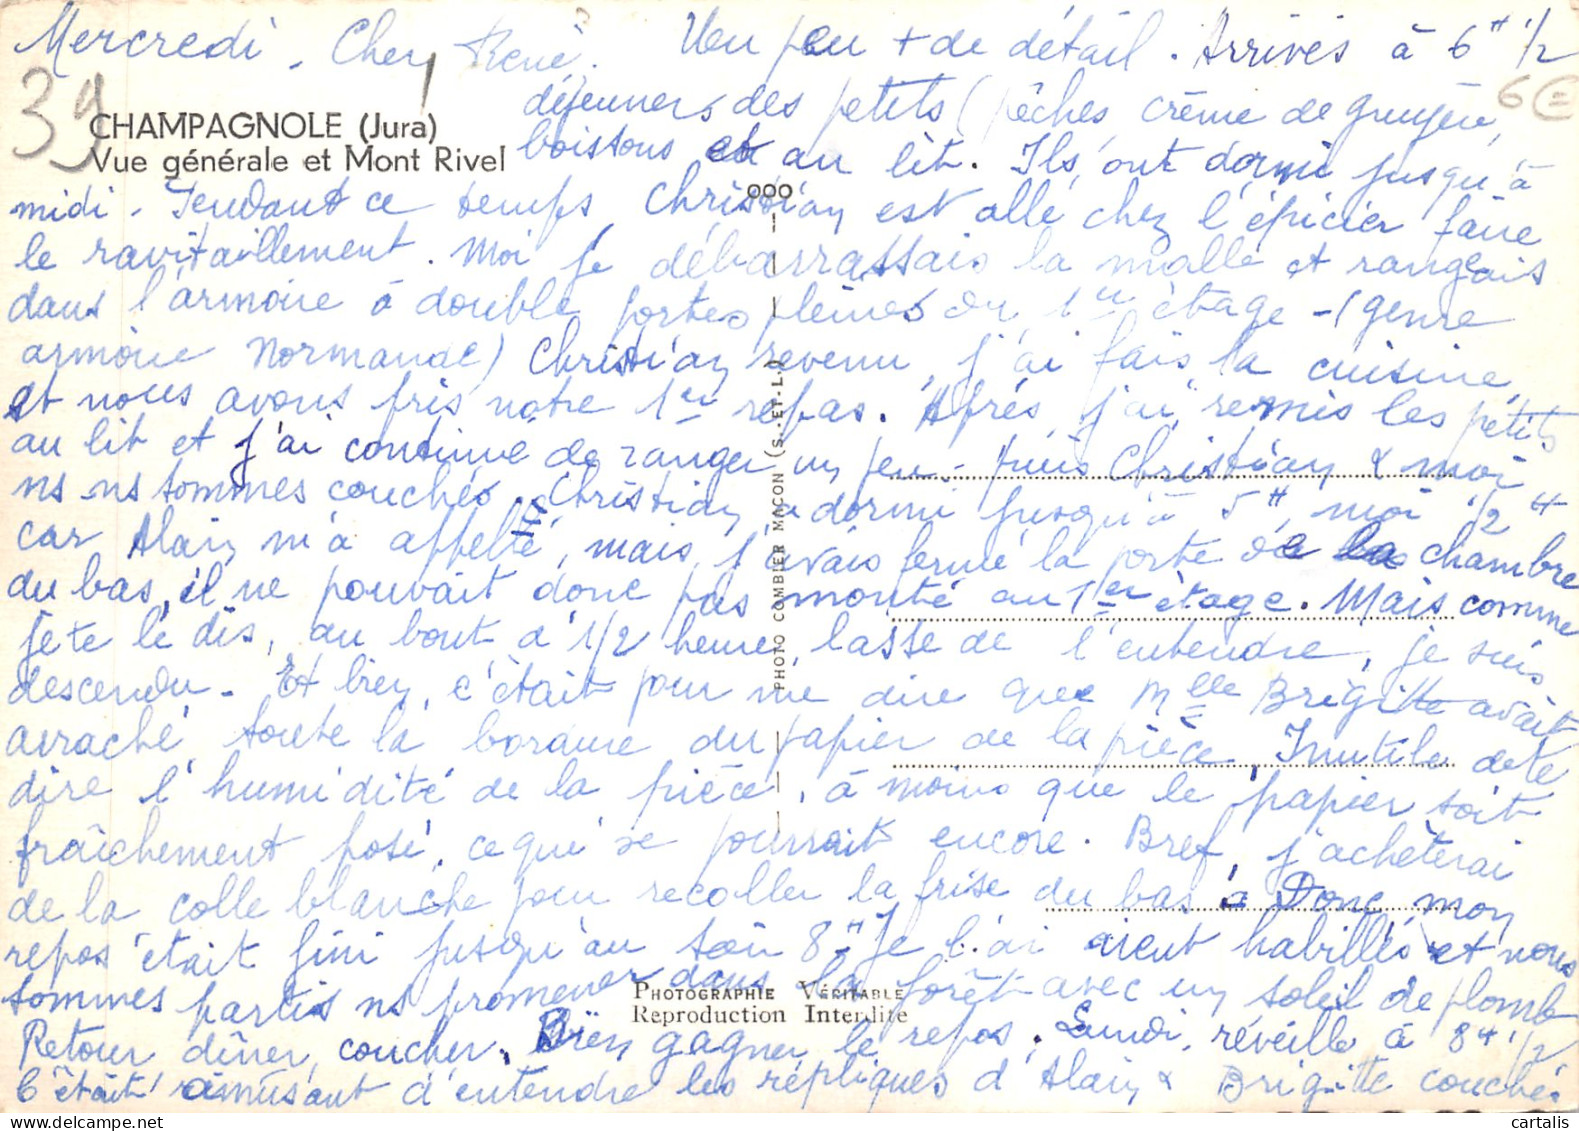 Mercredi. Cher René. Un peu + de détail. Arrivés à 6 H 1/2
39
déjeuners des petits (pêches crème de gruyère,
6 €
CHAMPAGNOLE (Jura)
Vue générale et Mont Rivel
boissons et au lit. Ils ont dormi jusqu'à
midi. Pendant ce temps Christian est allé chez l'épicier faire
le ravitaillement. Moi je débarrassais la malle et rangeais
dans l'armoire à double portes pleines du 1er étage - (genre
armoire Normande) Christian revenu, j'ai fais la cuisine,
et nous avons pris notre 1er repas. Après, j'ai remis les petits
au lit et j'ai continué de ranger un peu - puis Christian & moi
ns ns sommes couchés. Christian a dormi jusqu'à 5 H, moi 1/2 H
car Alain m'a appellé, mais j'avais fermé la porte de la chambre
du bas, il ne pouvait donc pas monté au 1er étage. Mais comme
je te le dis, au bout d'1/2 heure, lasse de l'entendre, je suis
descendu - Et bien, c'était pour me dire que Mlle Brigitte avait
arraché toute la bordure du papier de la pièce. Inutile de te
dire l'humidité de la pièce, à moins que le papier soit
fraîchement posé, ce qui se pourrait encore. Bref, j'achèterai
de la colle blanche pour recoller la frise du bas. Donc, mon
repos était fini jusqu'au soir 8 H. Je l'ai aient habillés et nous
sommes partis ns promener dans la forêt avec un soleil de plomb
Retour dîner, coucher. Bien gagner le repos. Lundi, réveillé à 8 H 1/2
C'était amusant d'entendre les répliques d'Alain & Brigitte couché.
PHOTO COMBIER MACON (S.-ET-L.)
PHOTOGRAPHIE VÉRITABLE
Reproduction Interdite
cartalis.com